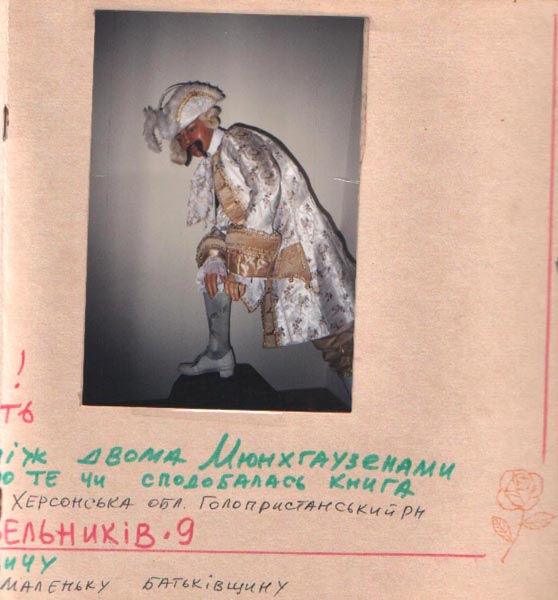 !
ТЬ
ІЖ ДВОМА МЮНХГАУЗЕНАМИ
О ТЕ ЧИ СПОДОБАЛАСЬ КНИГА
ХЕРСОНСЬКА ОБЛ. ГОЛОПРИСТАНСЬКИЙ РН
ЕЛЬНИКІВ. 9
ИЧУ
МАЛЕНЬКУ БАТЬКІВЩИНУ